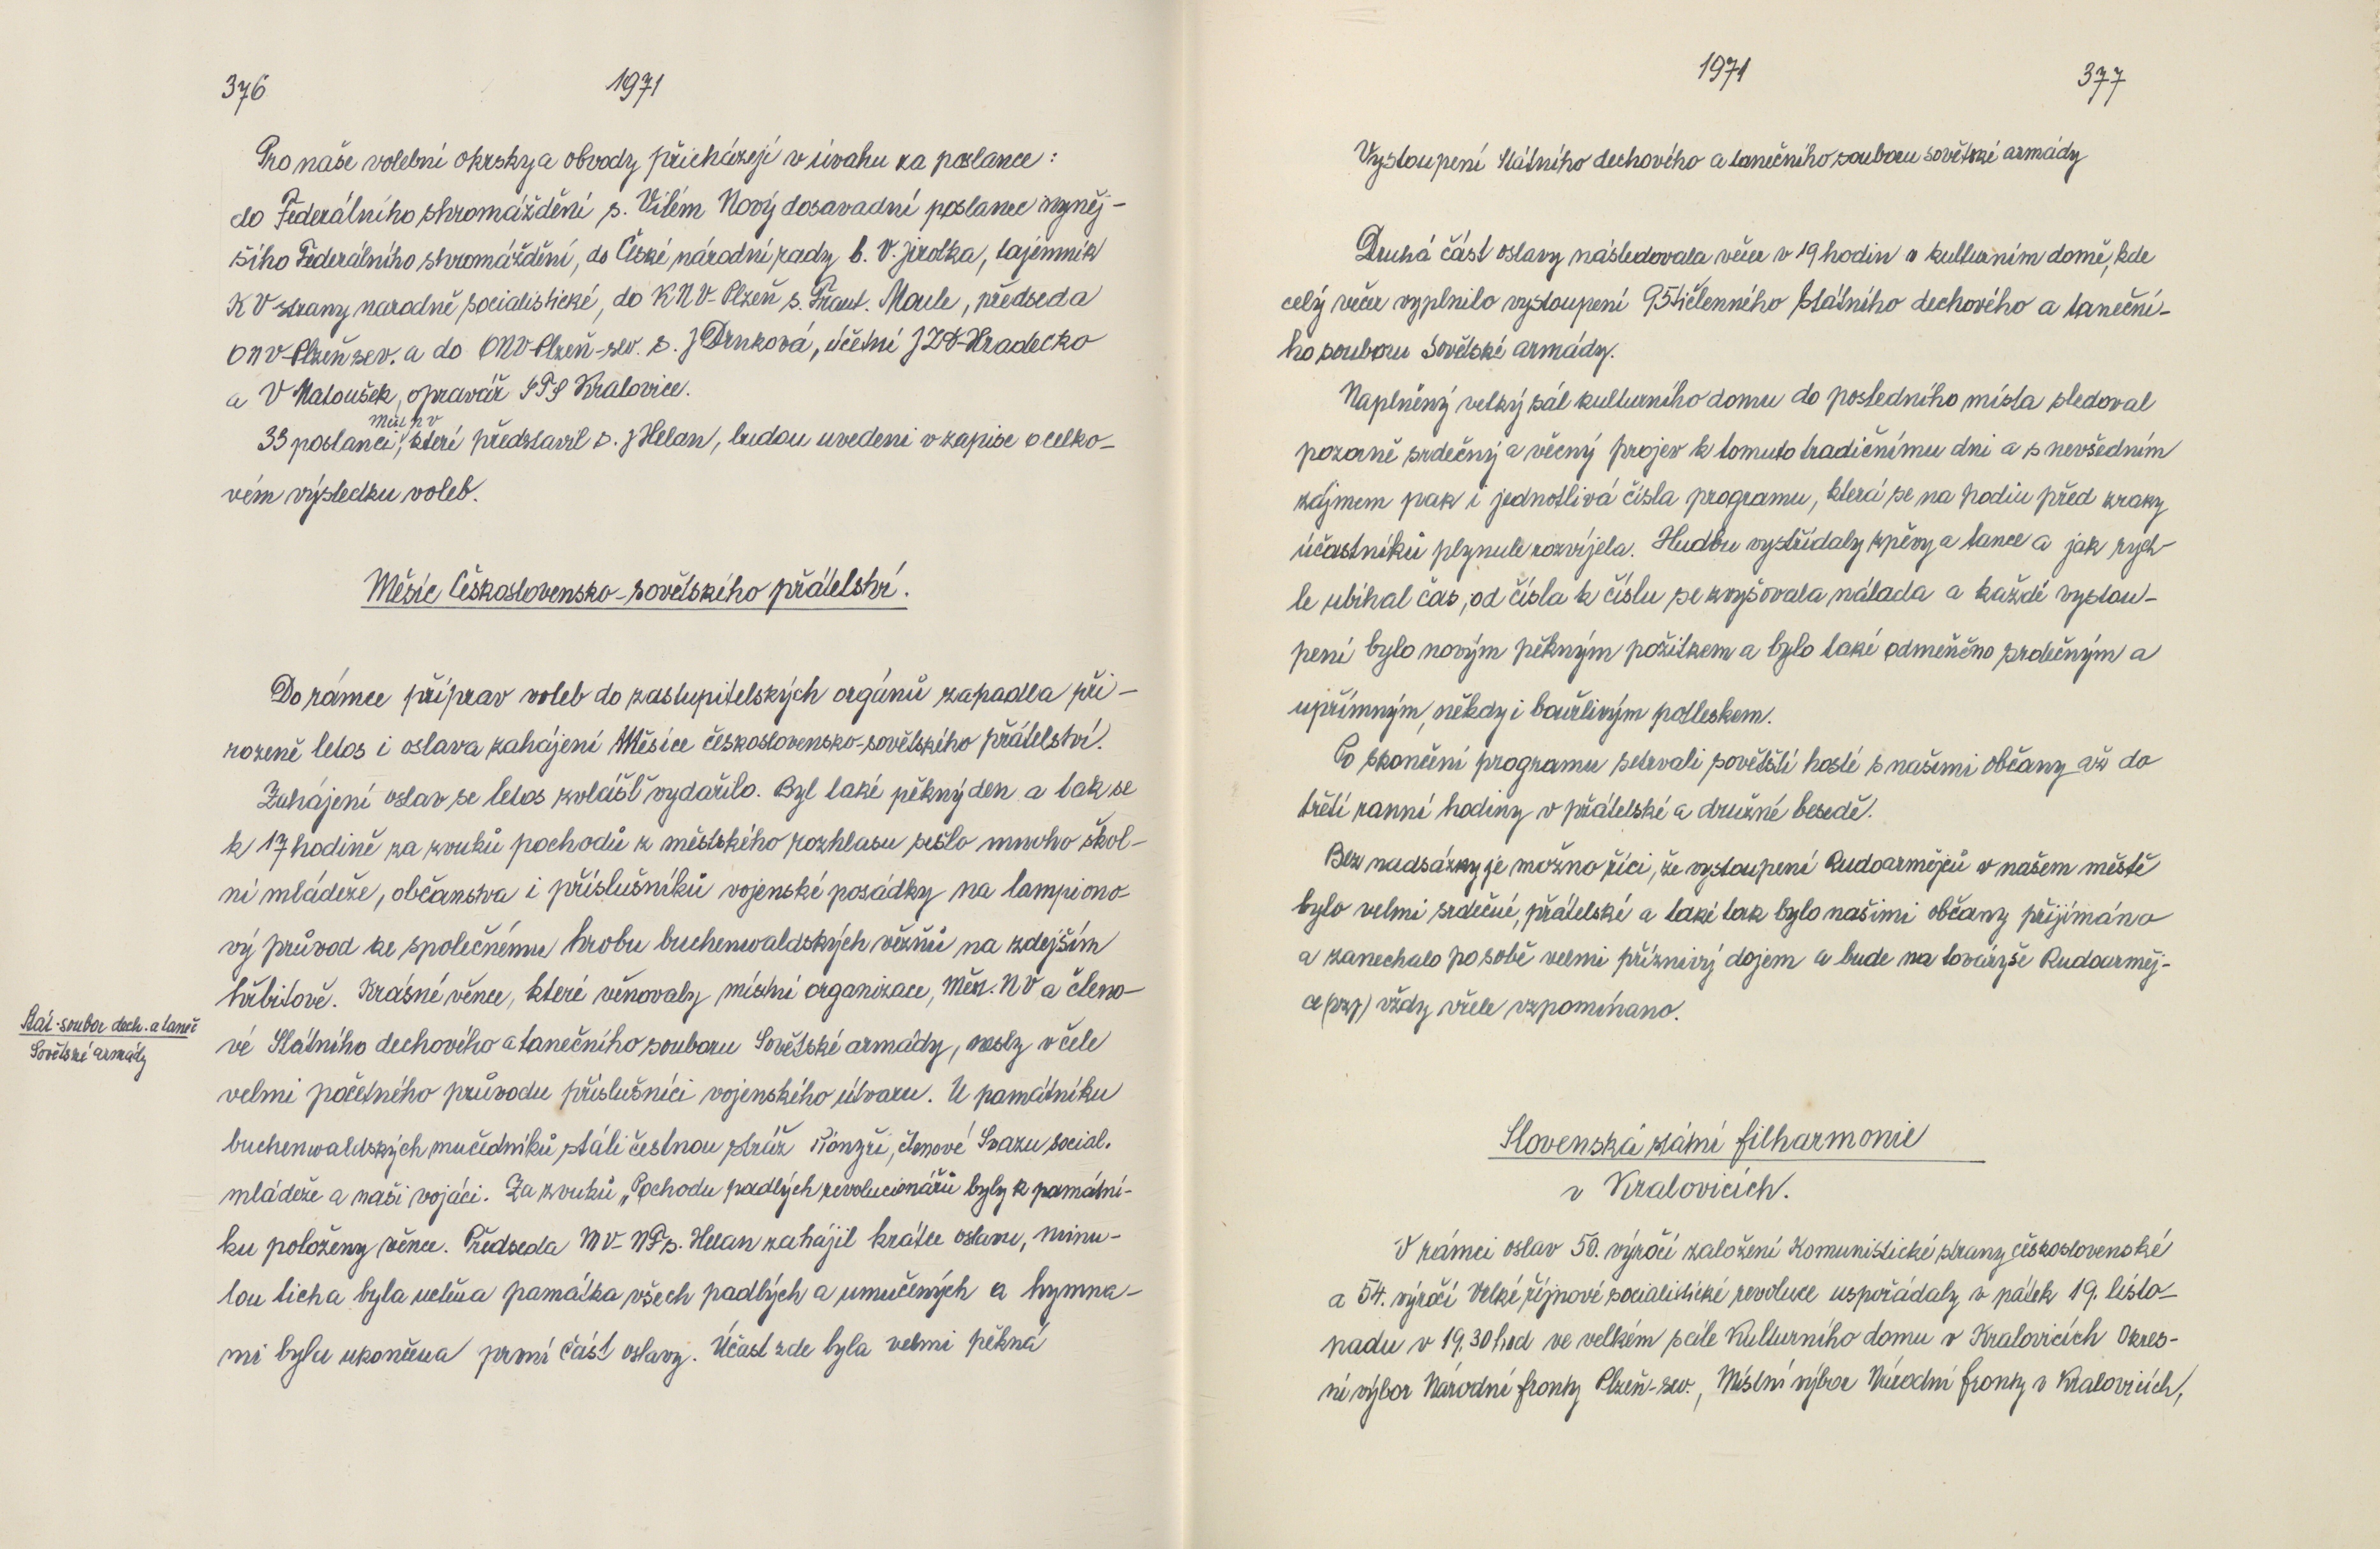 376
1971
Pro naše volební okrsky a obvody přicházejí v úvahu za poslance :
do Federálního shromáždění s. Vilém Nový dosavadní poslanec nyněj-
šího Federálního shromáždění, do České národní rady b. V. Jirotka, tajemník
KV strany narodně socialistické, do KNV-Plzeň s. Frant. Moule, předseda
ONV-Plzeň sev. a do ONV Plzeň-sev. s. J Drnková, účetní JZD-Hradecko
a V Matoušek, opravář STS Kralovice.
Měst NV
33 poslanci, kteří představil s. J Helan, budou uvedeni v zapise o celko-
vém výsledku voleb.
Měsíc Československo-sovětského přátelství.
Do rámce příprav voleb do zastupitelských orgánů zapadla při-
rozeně letos i oslava zahájení Měsíce československo-sovětského přátelství.
Zahájení oslav se letos zvlášť vydařilo. Byl také pěkný den a tak se
k 17 hodině za zvuků pochodů z městského rozhlasu sešlo mnoho škol-
ní mládeže, občanstva i příslušníků vojenské posádky na lampiono-
vý průvod ke společnému hrobu buchenwaldských vězňů na zdejším
hřbitově. Krásné věnce, které věnovaly místní organizace, Měs. NV a členo-
Stát. soubor dech. a taneč
Sovětské armády
vé Státního dechového a tanečního souboru Sovětské armády, nesly v čele
velmi početného průvodu příslušníci vojenského útvaru. U památníku
buchenwaldských mučedníků stáli čestnou stráž Pionýři, členové Svazu social.
mládeže a naši vojáci. Za zvuků „Pochodu padlých revolucionářů byly k památní-
ku položeny věnce. Předseda MV-NF s. Helan zahájil krátce oslavu, minu-
tou ticha byla uctěna památka všech padlých a umučených a hymna-
mi byla ukončena první část oslavy. Účast zde byla velmi pěkná
1971
377
Vystoupení Státního dechového a tanečního souboru sovětské armády
Druhá část oslavy následovala večer v 19 hodin v kulturním domě, kde
celý večer vyplnilo vystoupení 95tičlenného Státního dechového a taneční-
ho souboru Sovětské armády.
Naplněný velký sál kulturního domu do posledního místa sledoval
pozorně srdečný a věcný projev k tomuto tradičnímu dni a s nevšedním
zájmem pak i jednotlivá čísla programu, která se na podiu před zraky
účastníků plynule rozvíjela. Hudbu vystřídaly zpěvy a tance a jak rych-
le ubíhal čas, od čísla k číslu se zvyšovala nálada a každé vystou-
pení bylo novým pěkným požitkem a bylo také odměněno srdečným a
upřímným, někdy i bouřlivým potleskem.
Po skončení programu setrvali sovětští hosté s našimi občany až do
třetí ranní hodiny v přátelské a družné besedě.
Bez nadsázky je možno říci, že vystoupení Rudoarmějců v našem městě
bylo velmi srdečné, přátelské a také tak bylo našimi občany přijímáno
a zanechalo po sobě velmi příznivý dojem a bude na tovaryše Rudoarměj-
ce vždy vřele vzpomínano.
Slovenská státní filharmonie
v Kralovicích.
V rámci oslav 50. výročí založení Komunistické strany československé
a 54. výročí Velké říjnové socialistické revoluce uspořádaly v pátek 19. listo-
padu v 19.30 hod ve velkém sále Kulturního domu v Kralovicích Okres-
ní výbor Národní fronty Plzeň-sev., Místní výbor Národní fronty v Kralovicích,